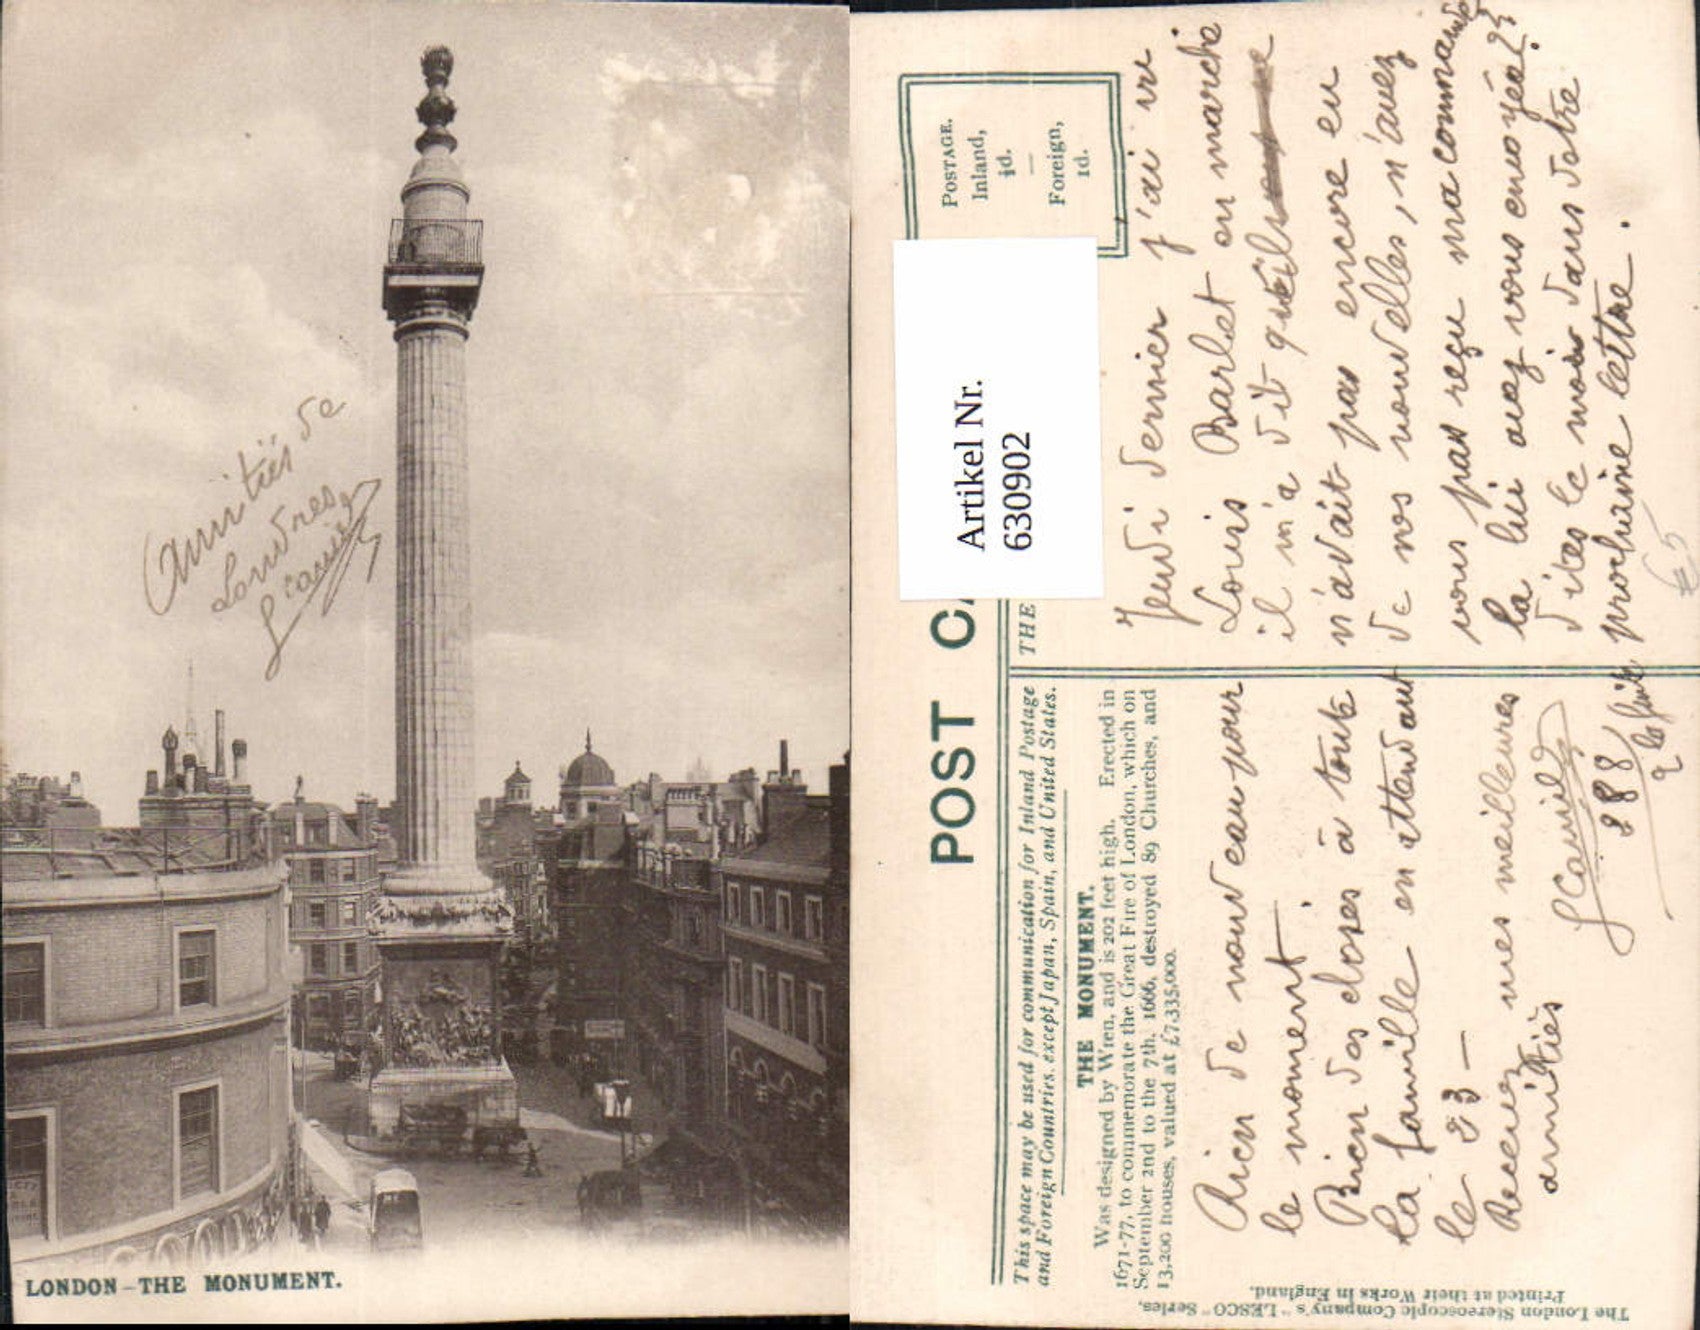 Amitiés de
Londres
LCamille
LONDON-THE MONUMENT.
POST CA
THE
POSTAGE.
Inland,
½d.
—
Foreign,
1d.
Artikel Nr.
630902
This space may be used for communication for Inland Postage
and Foreign Countries, except Japan, Spain, and United States.
THE MONUMENT.
Was designed by Wren, and is 202 feet high. Erected in
1671-77, to commemorate the Great Fire of London, which on
September 2nd to the 7th, 1666, destroyed 89 Churches, and
13,200 houses, valued at £7,335,000.
Jeudi dernier j'ai vu
Louis Barlet en marche
il m'a dit qu'il
n'avait pas encore eu
de nos nouvelles, n'avez
vous pas reçu ma comman
la lui avez vous envoyée??
dites le moi dans votre
prochaine lettre.
Rien de nouveau pour
le moment
Bien des choses à toute
la famille en attendant
le 23 —
Recevez mes meilleures
amitiés
888
€5
The London Stereoscopic Company's "LESCO" Series.
Printed at their Works in England.